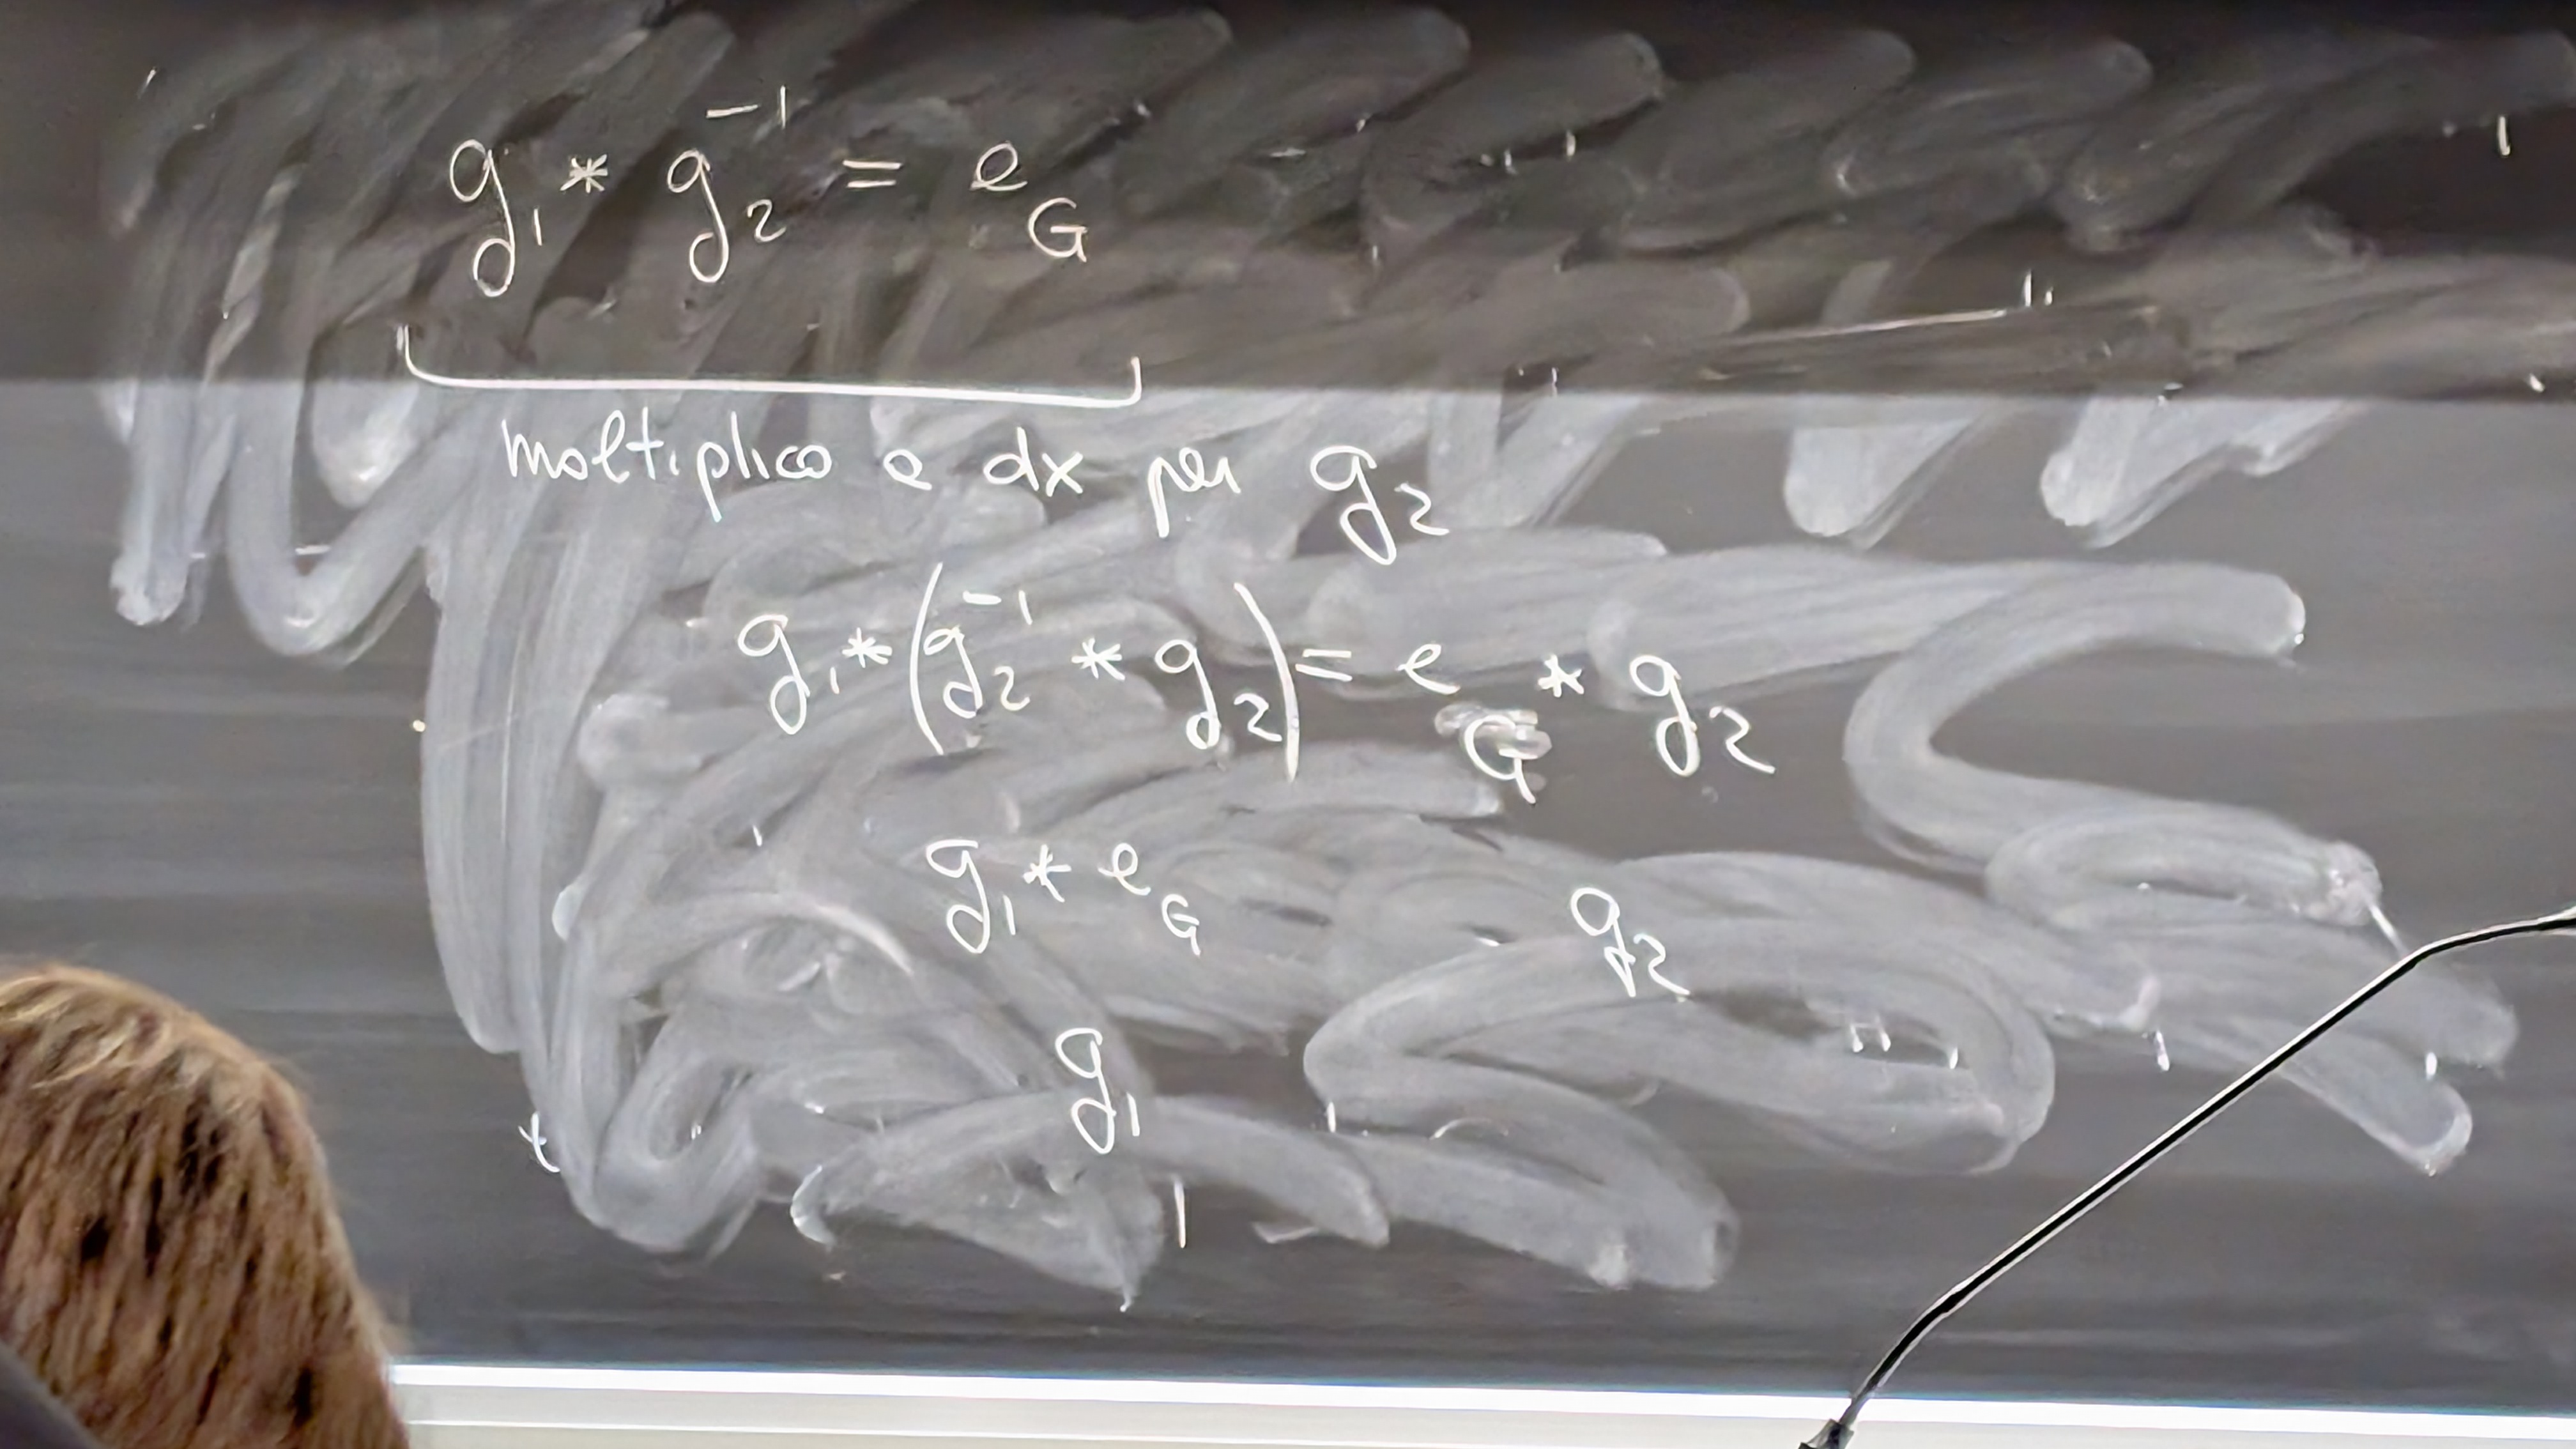 g₁ * g₂⁻¹ = e_G
moltiplico a dx per g₂
g₁ * (g₂⁻¹ * g₂) = e_G * g₂
g₁ * e_G g₂
g₁